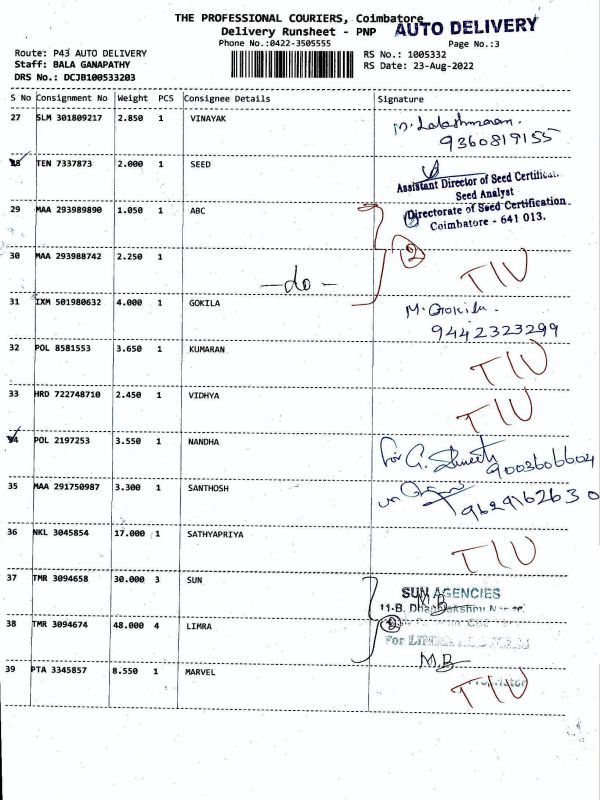 THE PROFESSIONAL COURIERS, Coimbatore
AUTO DELIVERY
Delivery Runsheet - PNP
Phone No.:0422-3505555
Page No.:3
Route: P43 AUTO DELIVERY
RS No.: 1005332
Staff: BALA GANAPATHY
RS Date: 23-Aug-2022
DRS No.: DCJB100533203
S No Consignment No Weight PCS Consignee Details Signature
27 SLM 301809217 2.850 1 VINAYAK
9360819155
TEN 7337873 2.000 1 SEED
Assistant Director of Seed
Seed Analyst
29 MAA 293989890 1.050 1 ABC
Directorate of Seed Certification
Coimbatore - 641 013.
30 MAA 293988742 2.250 1
2
TIV
-do-
31 IXM 501980632 4.000 1 GOKILA
9442323299
32 POL 8581553 3.650 1 KUMARAN
TIV
33 HRD 722748710 2.450 1 VIDHYA
TIV
34 POL 2197253 3.550 1 NANDHA
For G.
9003606604
35 MAA 291750987 3.300 1 SANTHOSH
9629162630
36 NKL 3045854 17.000 1 SATHYAPRIYA
TIV
37 TMR 3094658 30.000 3 SUN
SUN AGENCIES
M.B
11-B.
38 TMR 3094674 48.000 4 LIMRA
For
M.B
39 PTA 3345857 8.550 1 MARVEL
TIV